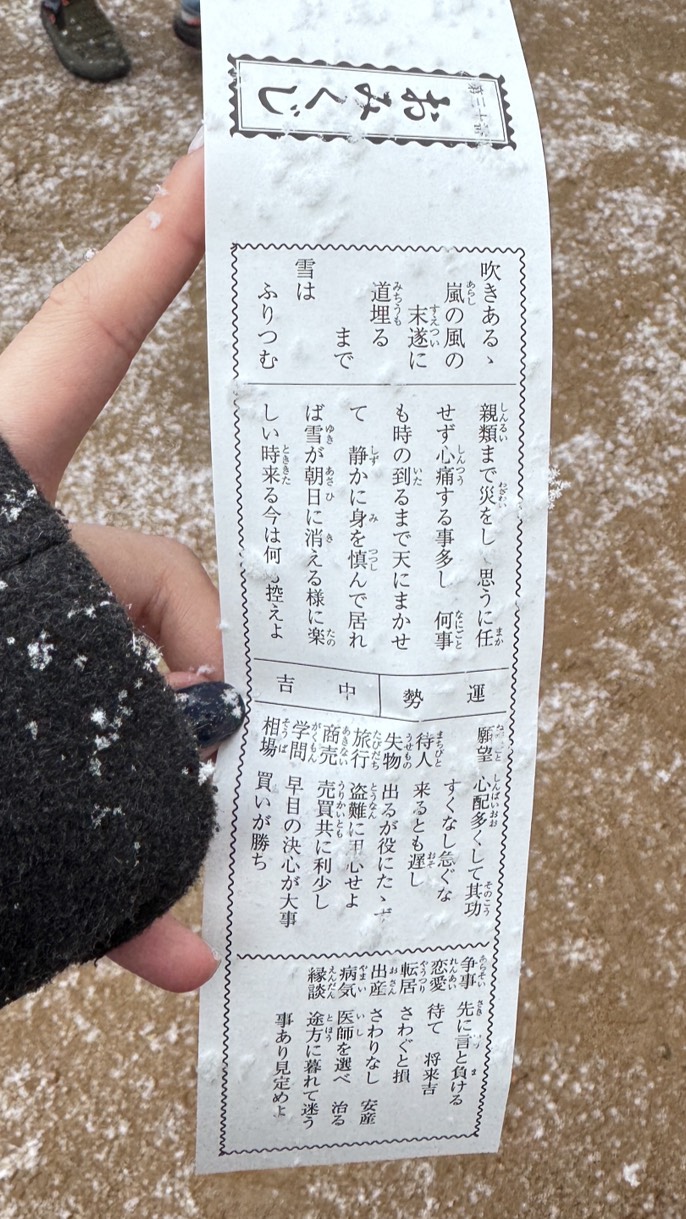 第二十番
おみくじ
吹きあるゝ
嵐の風の
末遂に
道埋る
まで
雪は
ふりつむ
親類まで災をし 思うに任
せず心痛する事多し 何事
も時の到るまで天にまかせ
て 静かに身を慎んで居れ
ば雪が朝日に消える様に楽
しい時来る今は何 控えよ
運勢 中吉
願望 心配多くして其功
すくなし急ぐな
待人 来るとも遅し
失物 出るが役にたゝず
旅行 盗難に用心せよ
商売 売買共に利少し
学問 早目の決心が大事
相場 買いが勝ち
争事 先に言と負ける
恋愛 待て 将来吉
転居 さわぐと損
出産 さわりなし 安産
病気 医師を選べ 治る
縁談 途方に暮れて迷う
事あり見定めよ